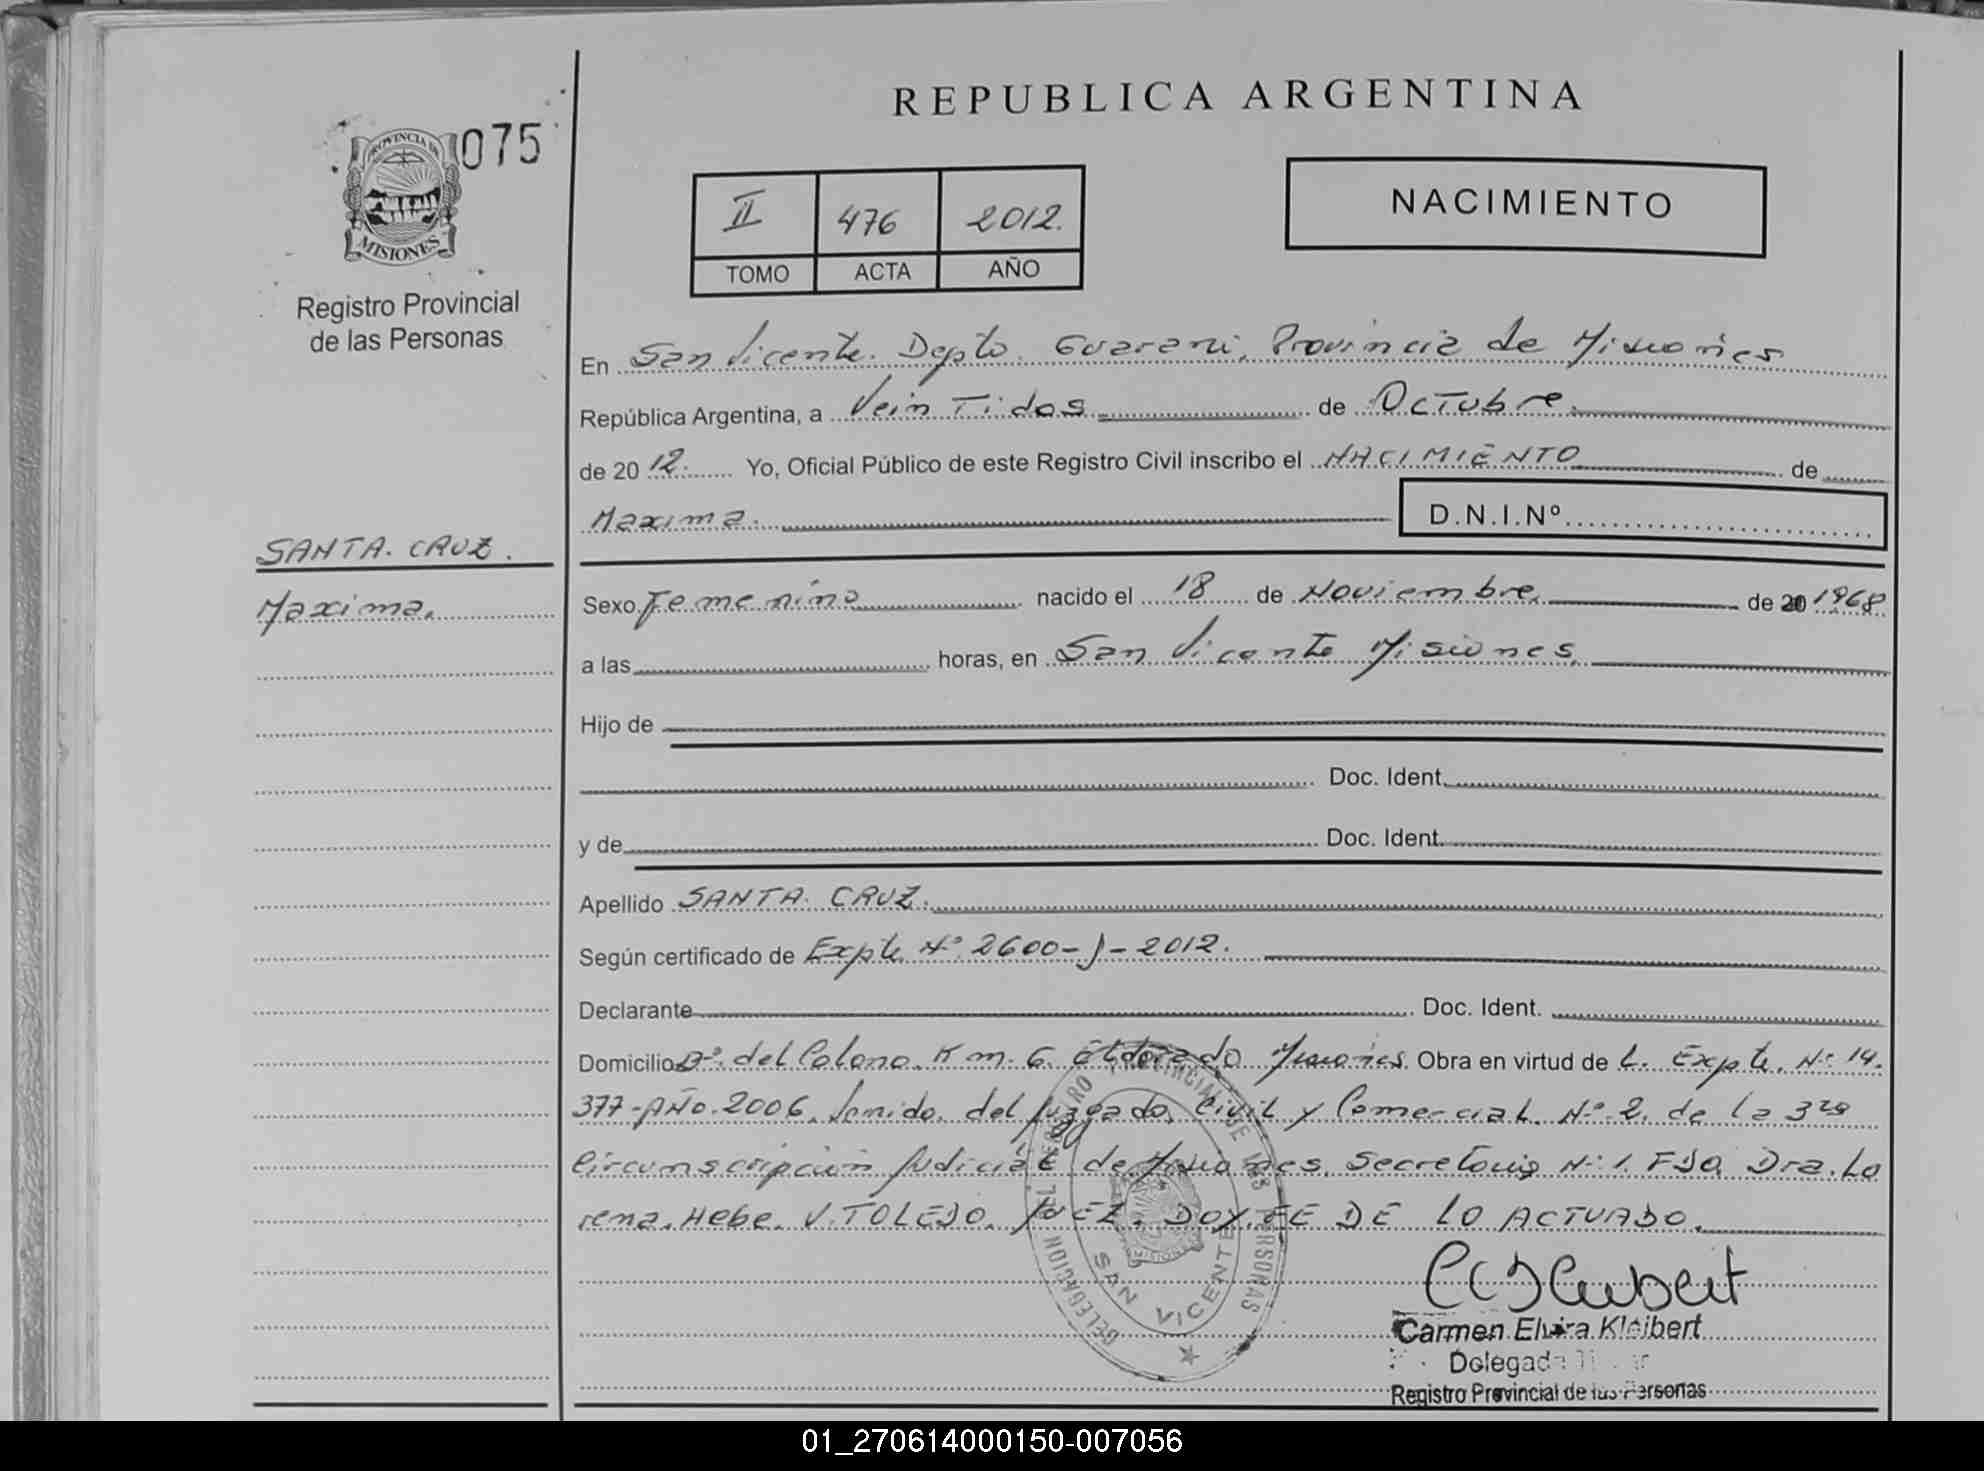 REPUBLICA ARGENTINA
PROVINCIA DE
MISIONES
075
Registro Provincial
de las Personas
II 476 2012.
TOMO ACTA AÑO
NACIMIENTO
En San Vicente. Depto. Guarani, Provincia de Misiones
República Argentina, a Vein Tidos de Octubre.
de 20 12. Yo, Oficial Público de este Registro Civil inscribo el NACIMIENTO de
Maxima. D.N.I.Nº
SANTA. CRUZ.
Maxima.
Sexo Femenino nacido el 18 de Noviembre. de 20 1968
a las horas, en San Vicente Misiones.
Hijo de
Doc. Ident.
y de Doc. Ident.
Apellido SANTA. CRUZ.
Según certificado de Expte Nº. 2600-J-2012.
Declarante Doc. Ident.
Domicilio Bº. del Colono. Km. 6. Eldorado Misiones. Obra en virtud de L. Expte. Nº 14.
377-AÑO.2006. venido. del Juzgado. Civil y Comercial. Nº. 2. de la 3ra
Circunscripción Judicial de Misiones. Secretaria Nº 1. FDO. Dra. Lo
rena. Hebe. V. TOLEDO. JUEZ. DOY. FE DE LO ACTUADO.
DELEGACION DEL REGISTRO PROVINCIAL DE LAS PERSONAS
MISIONES
SAN VICENTE
Carmen Elvira Kleibert
Delegada
Registro Provincial de las Personas
01_270614000150-007056